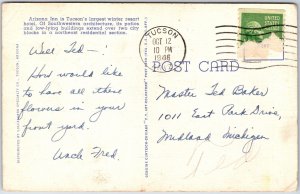 Arizona Inn is Tucson's largest winter resort
hotel. Of Southwestern architecture, its patios
and low-lying buildings extend over two city
blocks in a northeast residential section.
TUCSON
OCT 12
10 PM
1946
POST CARD
Well Ted—!
How would like
to have all these
flowers in your
front yard.
Uncle Fred.
Master Ted Baker
1011 East Park Drive,
Midland Michigan